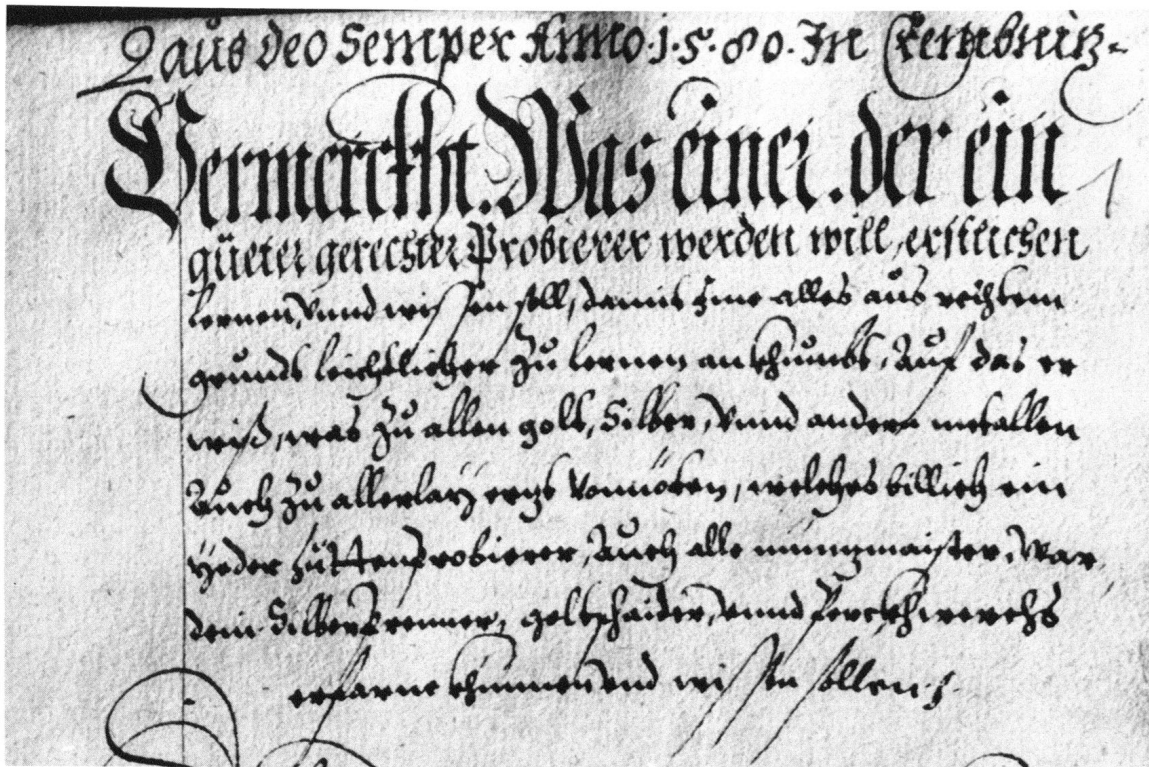 Laus deo Semper Anno 1·5·80· In Crembnitz
Vermerckht. Was einer. der ein
gueter gerechter Probierer werden will, erstlichen
lernen, vnnd wissen soll, damit ime alles aus rechtem
grundt leichtlicher zu lernen ankhumbt, Auf das er
wiß, was zu allen golt, Silber, vnnd andern metallen
Auch zu allerlaÿ erzt vonnöten, welches billich ein
yeder hüttenprobierer, Auch alle munzmaister, War
dein Silberprenner, goltschaider, vnnd Perckhwerchs
erfarne khunnen vnd wissen sollen